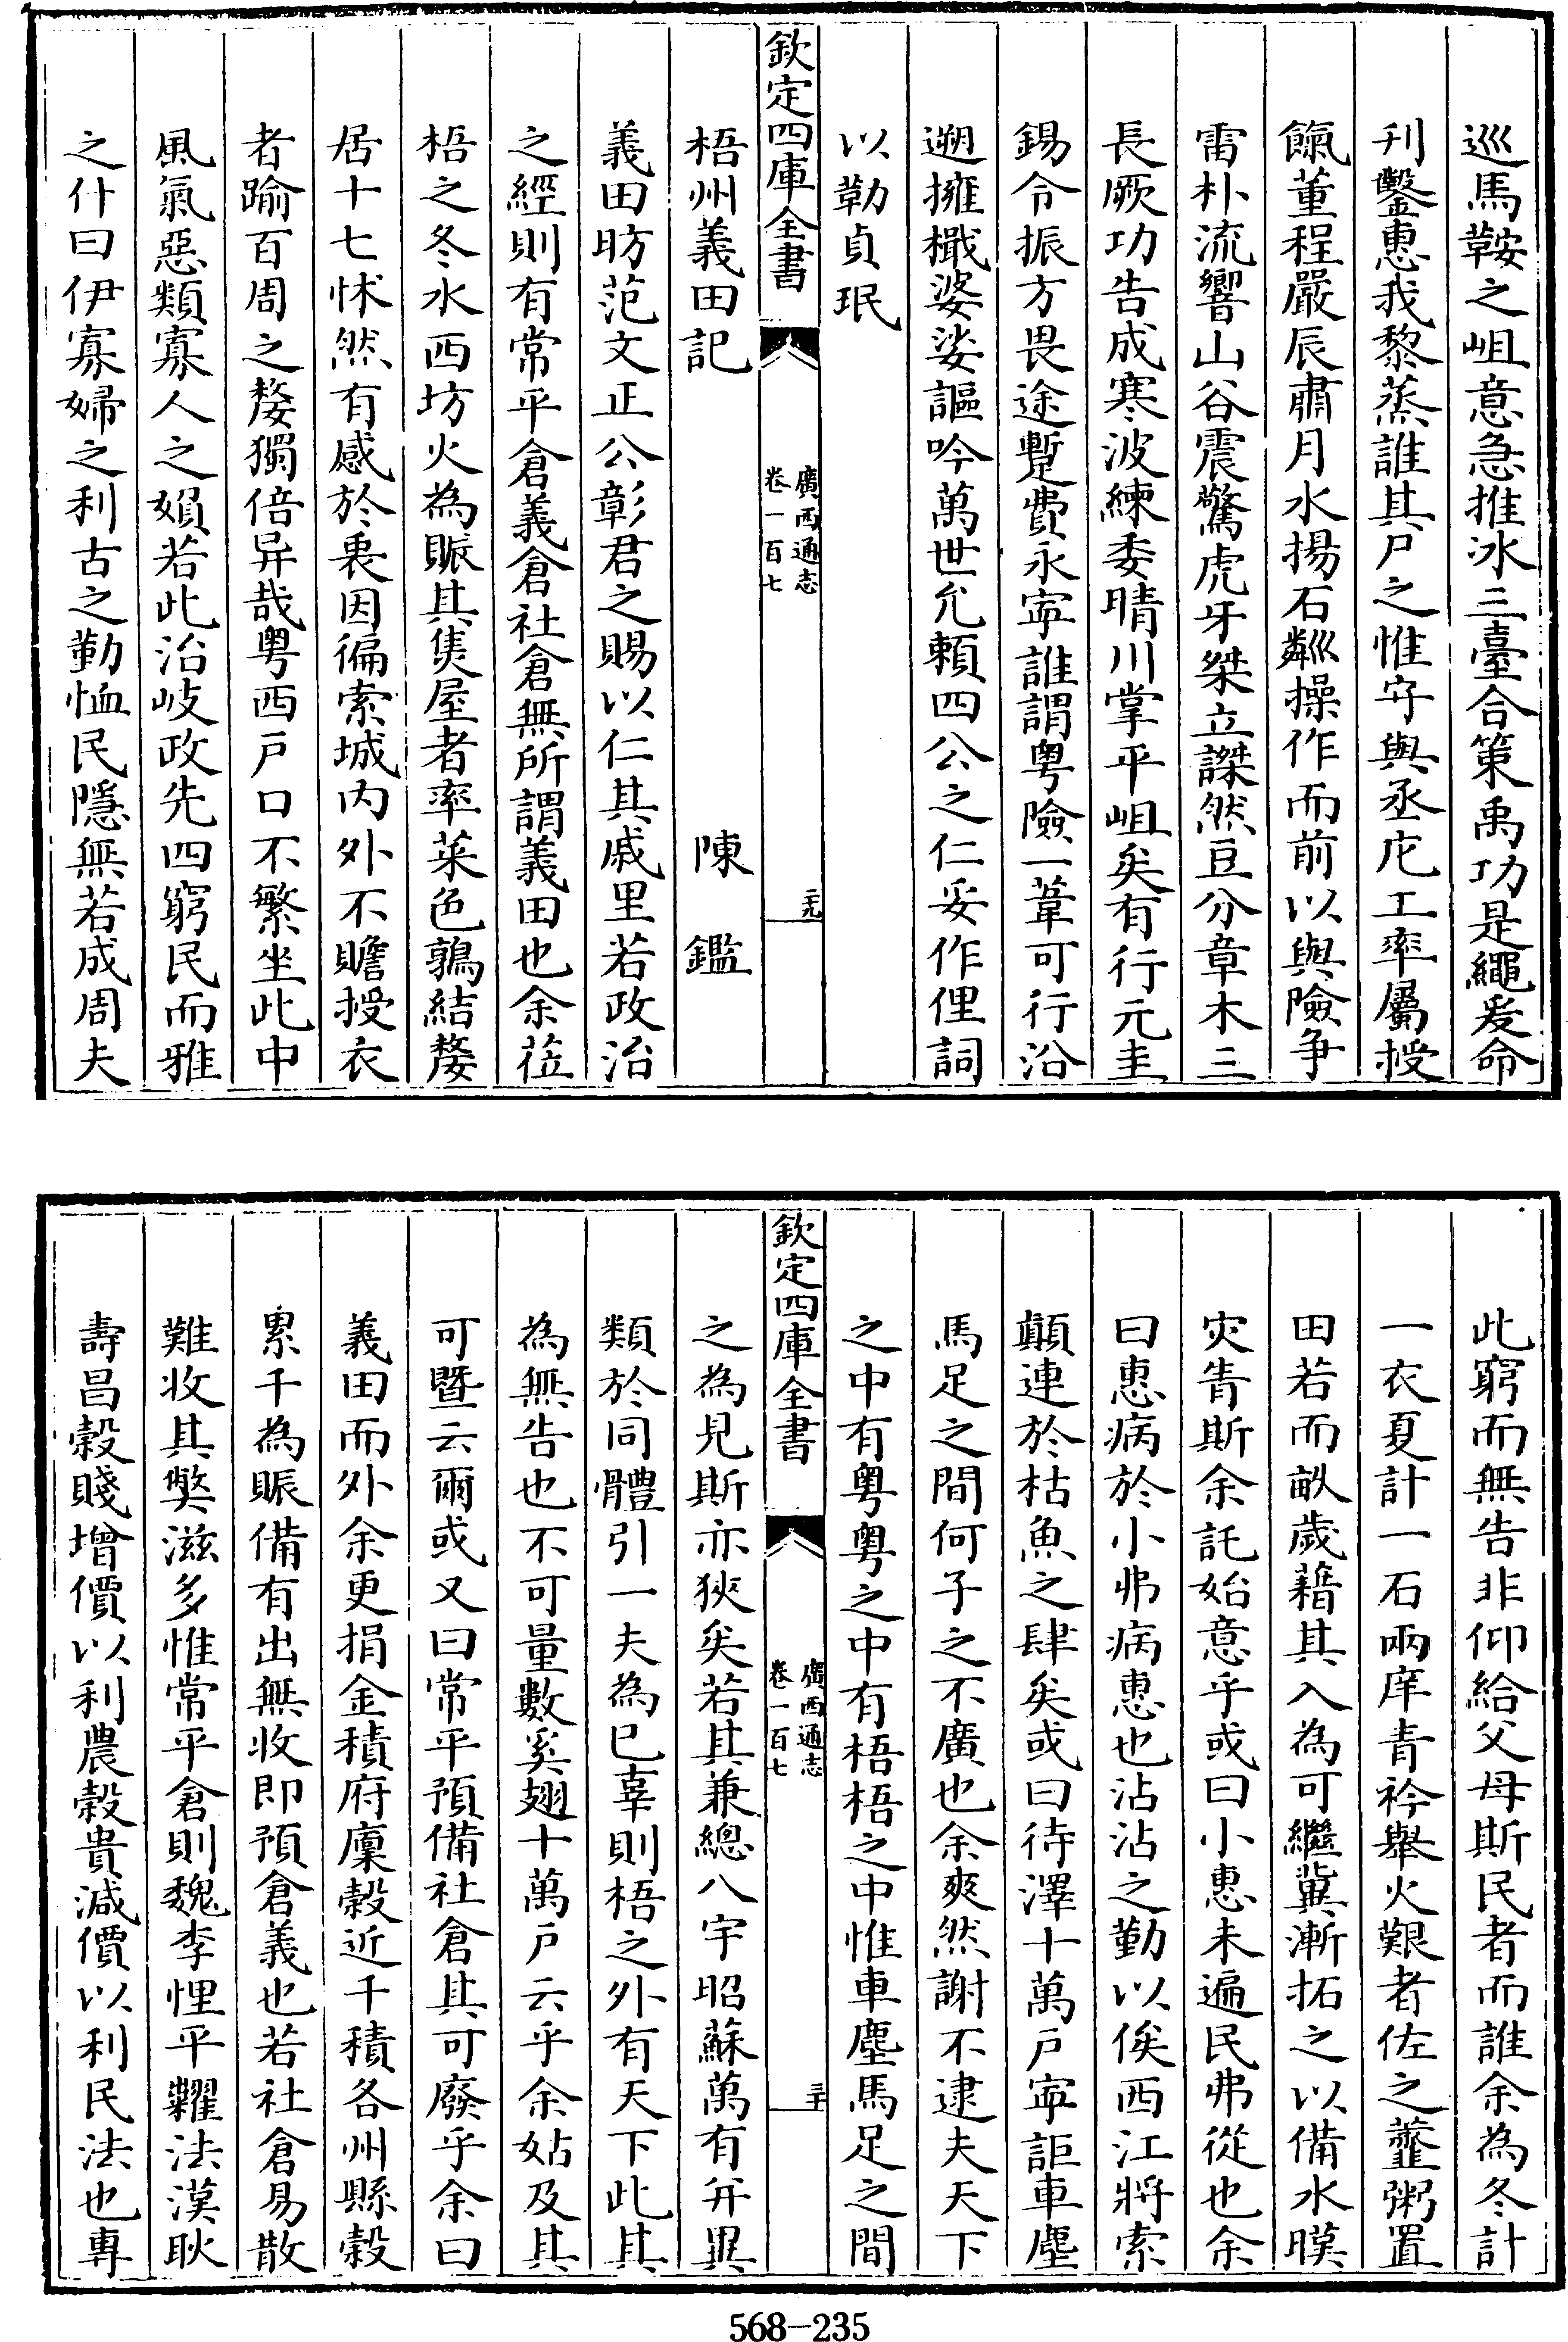 巡馬鞍之岨意急推冰三臺合策禹功是繩爰命
刋鑿惠我黎蒸誰其尸之惟守與丞庀工率屬授
餼董程嚴辰肅月水揚石粼操作而前以與險争
雷朴流響山谷震驚虎牙桀立謋然豆分章木三
長厥功告成寒波練委晴川掌平岨矣有行元圭
錫令振方畏途蹔費永寜誰謂粤險一葦可行沿
遡擁檝婆娑謳吟萬世允頼四公之仁妥作俚詞
以勒貞珉
欽定四庫全書
廣西通志
卷一百七
二十九
梧州義田記 陳鑑
義田昉范文正公彰君之賜以仁其戚里若政治
之經則有常平倉義倉社倉無所謂義田也余蒞
梧之冬水西坊火為賑其𨾏屋者率菜色鶉結嫠
居十七怵然有感於衷因徧索城内外不贍授衣
者踰百周之嫠獨倍异哉粤西戸口不繁坐此中
風氣惡類寡人之媍若此治岐政先四窮民而雅
之什曰伊寡婦之利古之勤恤民隱無若成周夫
此窮而無告非仰給父母斯民者而誰余為冬計
一衣夏計一石兩庠青衿舉火艱者佐之虀粥置
田若而畝歲藉其入為可繼冀漸拓之以備水暵
灾眚斯余託始意乎或曰小惠未遍民弗從也余
曰惠病於小弗病惠也沾沾之勤以俟西江將索
顛連於枯魚之肆矣或曰待澤十萬戸寜詎車塵
馬足之間何子之不廣也余爽然謝不逮夫天下
之中有粤粤之中有梧梧之中惟車塵馬足之間
欽定四庫全書
廣西通志
卷一百七
三十
之為見斯亦狹矣若其兼總八宇昭蘇萬有弁異
類於同體引一夫為已辜則梧之外有天下此其
為無告也不可量數奚翅十萬戸云乎余姑及其
可暨云爾或又曰常平預備社倉其可廢乎余曰
義田而外余更捐金積府廩穀近千積各州縣穀
累千為賑備有出無收即預倉義也若社倉易散
難收其獘滋多惟常平倉則魏李悝平糶法漢耿
壽昌穀賤增價以利農穀貴減價以利民法也專
568-235